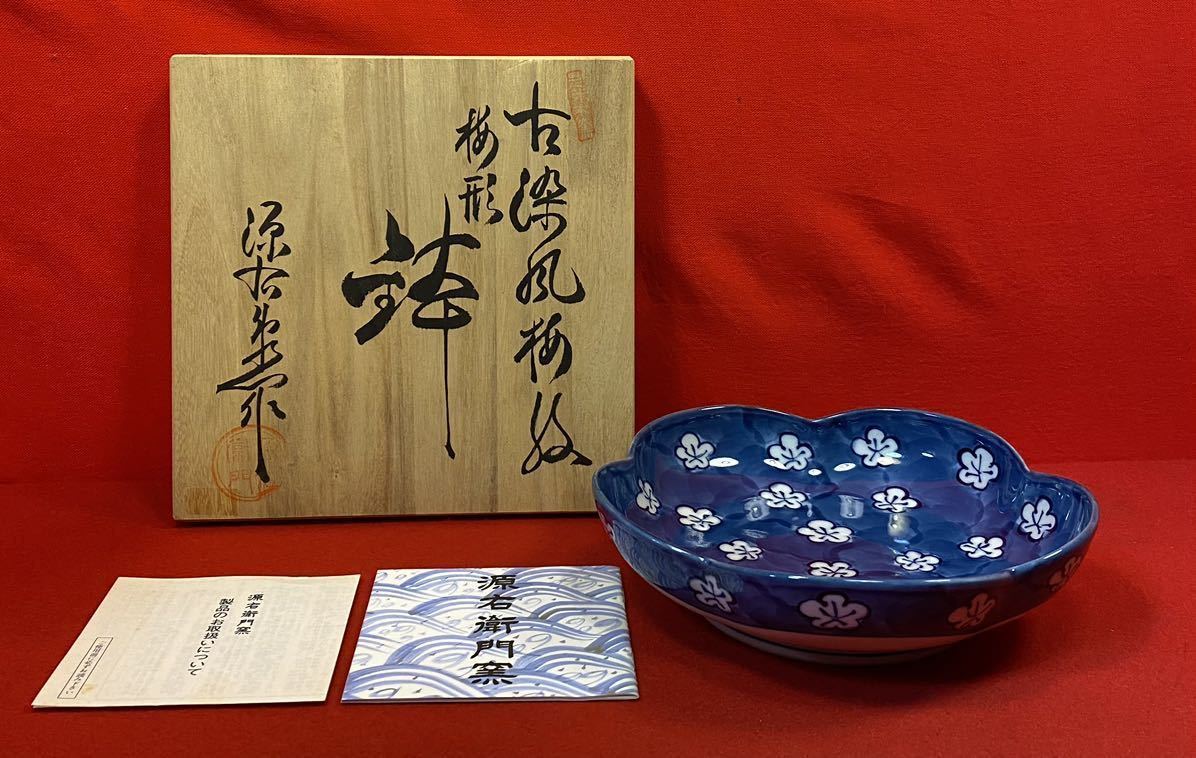 古染風梅紋
梅形
鉢
源右衛門作
源右衛門窯
製品のお取扱いについて
源右衛門窯